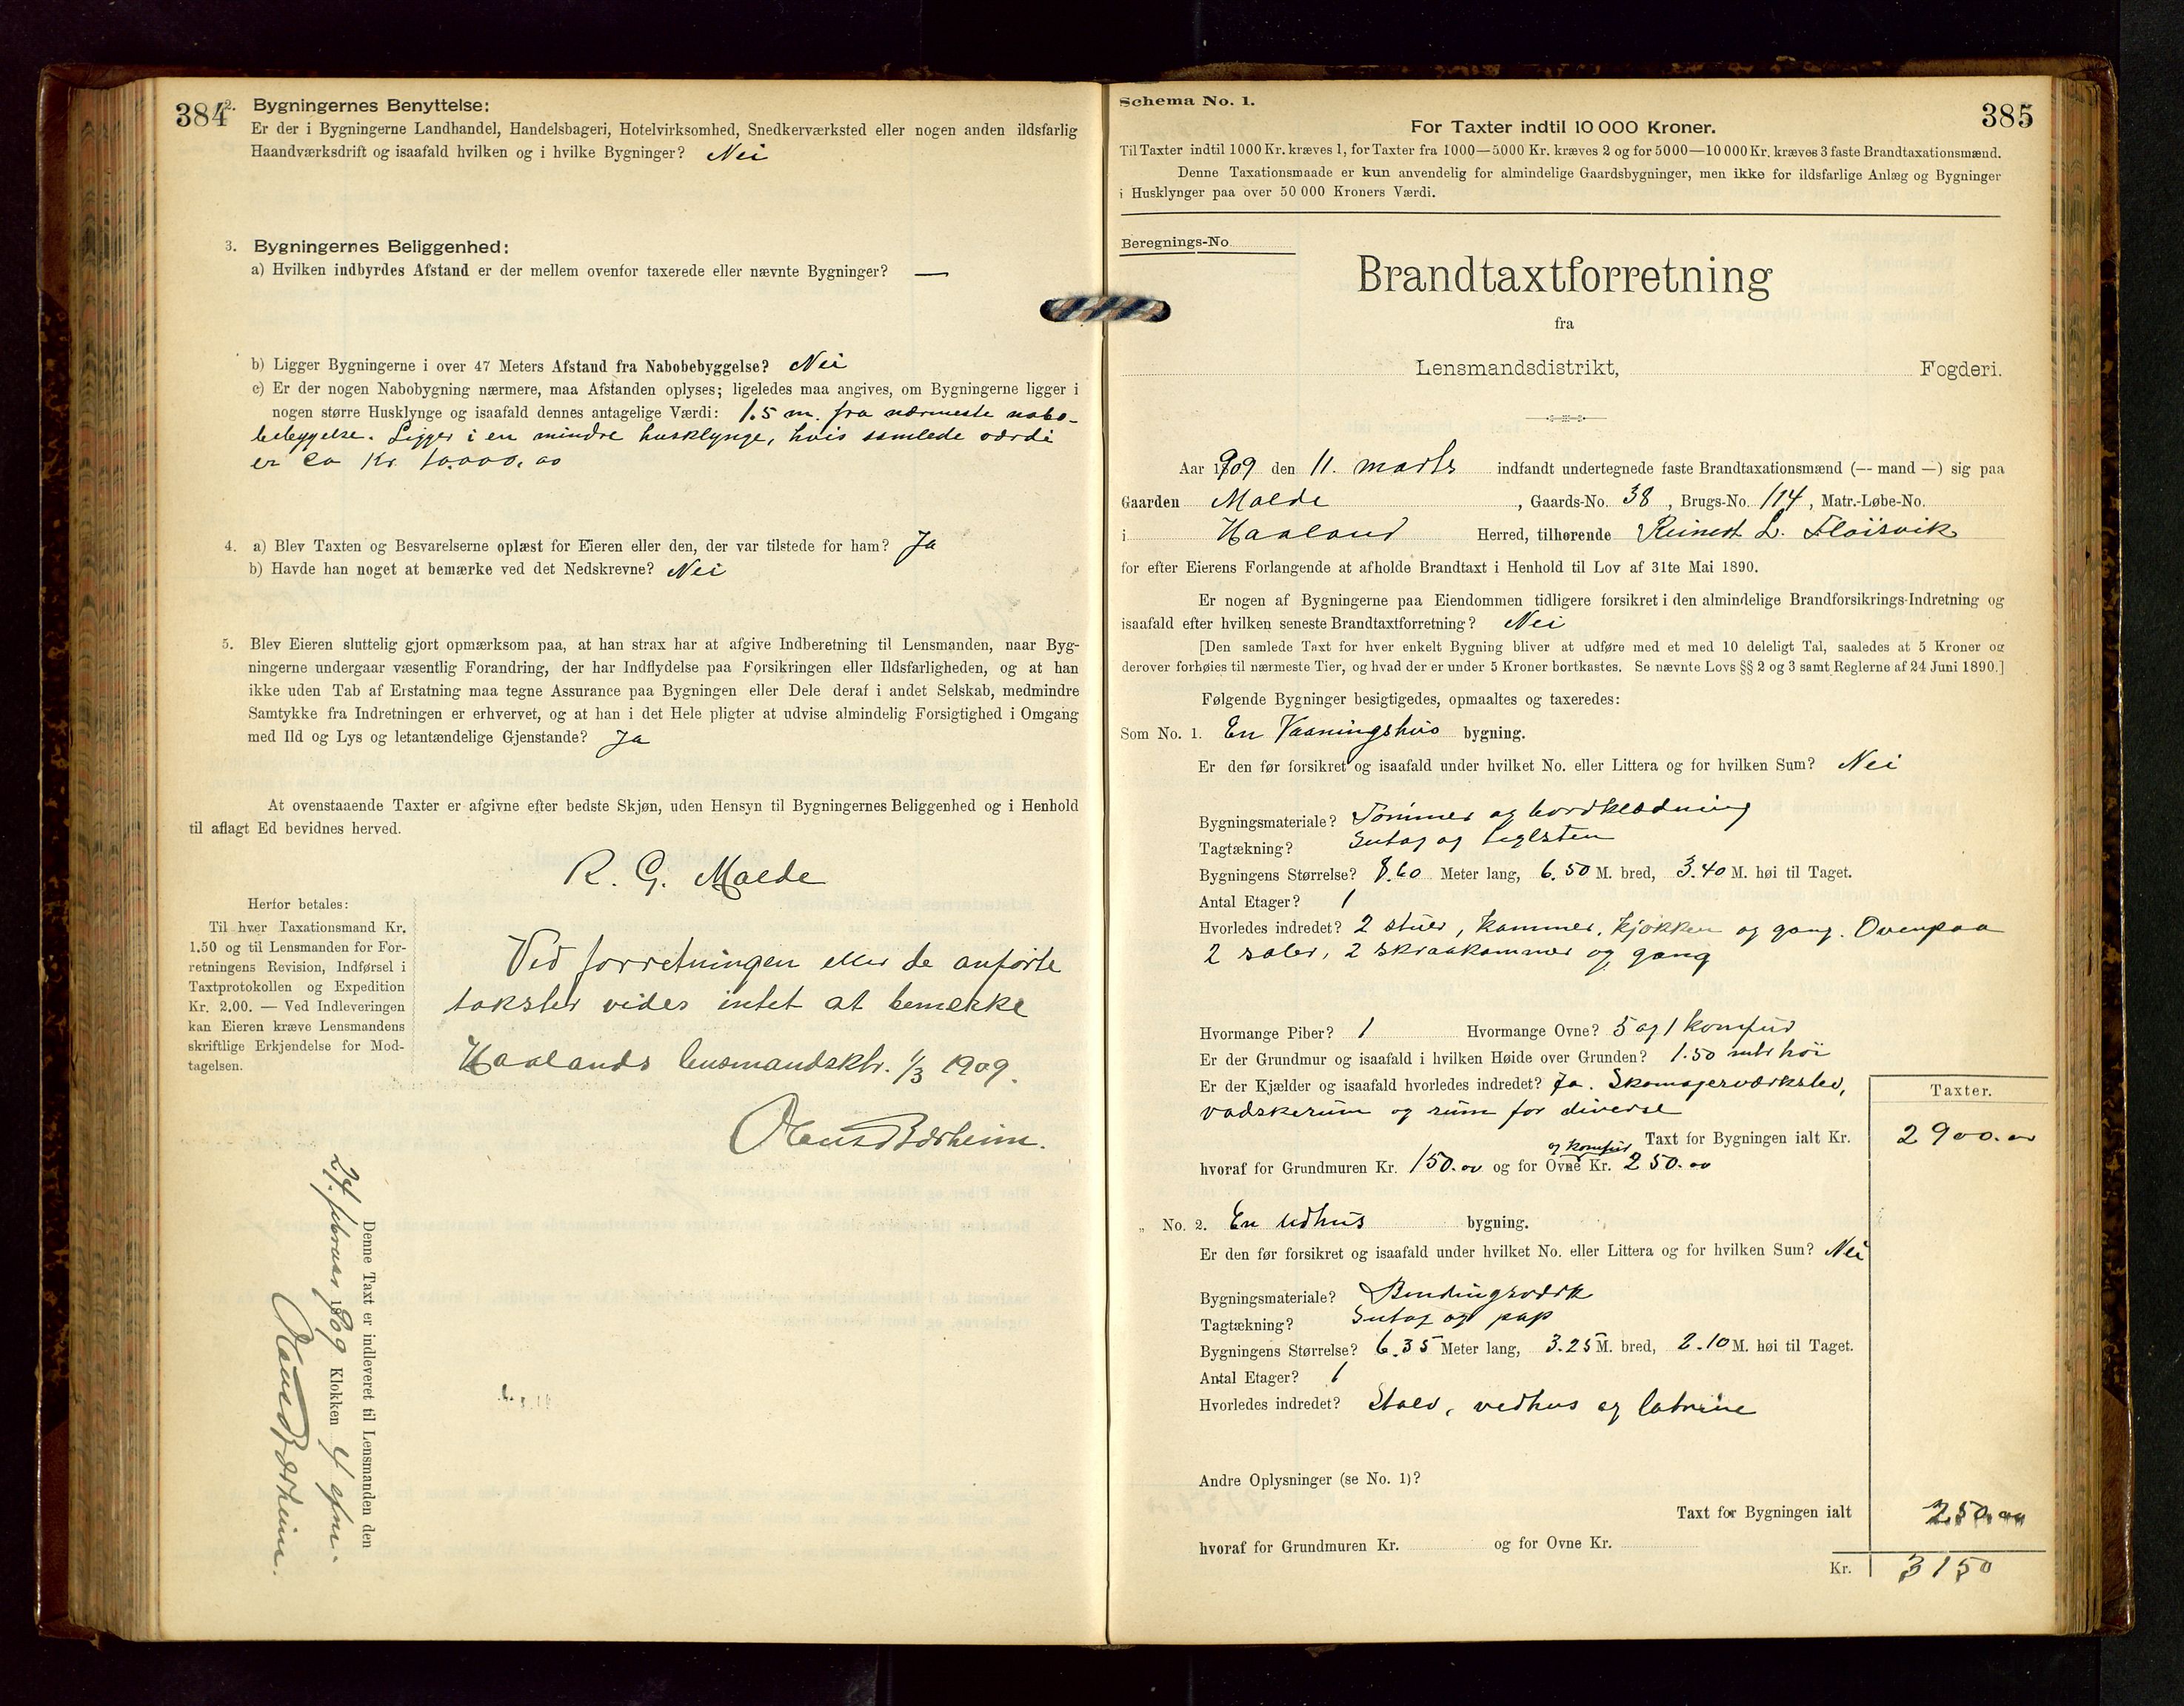 384
2. Bygningernes Benyttelse:
Er der i Bygningerne Landhandel, Handelsbageri, Hotelvirksomhed, Snedkerværksted eller nogen anden ildsfarlig
Haandværksdrift og isaafald hvilken og i hvilke Bygninger? Nei
3. Bygningernes Beliggenhed:
a) Hvilken indbyrdes Afstand er der mellem ovenfor taxerede eller nævnte Bygninger? —
b) Ligger Bygningerne i over 47 Meters Afstand fra Nabobebyggelse? Nei
c) Er der nogen Nabobygning nærmere, maa Afstanden oplyses; ligeledes maa angives, om Bygningerne ligger i
nogen større Husklynge og isaafald dennes antagelige Værdi: 1.5 m. fra nærmeste nabo-
bebyggelse. Ligger i en mindre husklynge, hvis samlede værdi
er ca Kr. 10.000.00
4. a) Blev Taxten og Besvarelserne oplæst for Eieren eller den, der var tilstede for ham? Ja
b) Havde han noget at bemærke ved det Nedskrevne? Nei
5. Blev Eieren sluttelig gjort opmærksom paa, at han strax har at afgive Indberetning til Lensmanden, naar Byg-
ningerne undergaar væsentlig Forandring, der har Indflydelse paa Forsikringen eller Ildsfarligheden, og at han
ikke uden Tab af Erstatning maa tegne Assurance paa Bygningen eller Dele deraf i andet Selskab, medmindre
Samtykke fra Indretningen er erhvervet, og at han i det Hele pligter at udvise almindelig Forsigtighed i Omgang
med Ild og Lys og letantændelige Gjenstande? Ja
At ovenstaaende Taxter er afgivne efter bedste Skjøn, uden Hensyn til Bygningernes Beliggenhed og i Henhold
til aflagt Ed bevidnes herved.
R. G. Malde
Herfor betales:
Til hver Taxationsmand Kr.
1.50 og til Lensmanden for For-
retningens Revision, Indførsel i
Taxtprotokollen og Expedition
Kr. 2.00. — Ved Indleveringen
kan Eieren kræve Lensmandens
skriftlige Erkjendelse for Mod-
tagelsen.
Ved forretningen eller de anførte
takster vides intet at bemerke
Haalands lensmandsktr. 1/3 1909.
Claus Bærheim.
Denne Taxt er indleveret til Lensmanden den
24. februar 1909 Klokken 4 efm.
Claus Bærheim.
385
Schema No. 1.
For Taxter indtil 10 000 Kroner.
Til Taxter indtil 1000 Kr. kræves 1, for Taxter fra 1000—5000 Kr. kræves 2 og for 5000—10 000 Kr. kræves 3 faste Brandtaxationsmænd.
Denne Taxationsmaade er kun anvendelig for almindelige Gaardsbygninger, men ikke for ildsfarlige Anlæg og Bygninger
i Husklynger paa over 50 000 Kroners Værdi.
Beregnings-No.
Brandtaxtforretning
fra
Lensmandsdistrikt, Fogderi.
Aar 1909 den 11. marts indfandt undertegnede faste Brandtaxationsmænd (— mand —) sig paa
Gaarden Malde, Gaards-No. 38, Brugs-No. 114, Matr.-Løbe-No.
i Haaland Herred, tilhørende Reinert L. Fløisvik
for efter Eierens Forlangende at afholde Brandtaxt i Henhold til Lov af 31te Mai 1890.
Er nogen af Bygningerne paa Eiendommen tidligere forsikret i den almindelige Brandforsikrings-Indretning og
isaafald efter hvilken seneste Brandtaxtforretning? Nei
[Den samlede Taxt for hver enkelt Bygning bliver at udføre med et med 10 deleligt Tal, saaledes at 5 Kroner og
derover forhøies til nærmeste Tier, og hvad der er under 5 Kroner bortkastes. Se nævnte Lovs §§ 2 og 3 samt Reglerne af 24 Juni 1890.]
Følgende Bygninger besigtigedes, opmaaltes og taxeredes:
Som No. 1. En Vaaningshus bygning.
Er den før forsikret og isaafald under hvilket No. eller Littera og for hvilken Sum? Nei
Bygningsmateriale? Tømmer og bordklædning
Tagtækning? Sutag og teglsten
Bygningens Størrelse? 8.60 Meter lang, 6.50 M. bred, 3.40 M. høi til Taget.
Antal Etager? 1
Hvorledes indredet? 2 stuer, kammer, kjøkken og gang. Ovenpaa
2 saler, 2 skraakammer og gang
Hvormange Piber? 1 Hvormange Ovne? 5 og 1 komfur
Er der Grundmur og isaafald i hvilken Høide over Grunden? 1.50 mtr høi
Er der Kjælder og isaafald hvorledes indredet? Ja. Skomagerværksted,
vadskerum og rum for diverse
Taxter.
Taxt for Bygningen ialt Kr. 2900.00
hvoraf for Grundmuren Kr. 150.00 og for Ovne og komfur Kr. 250.00
„ No. 2. En Udhus bygning.
Er den før forsikret og isaafald under hvilket No. eller Littera og for hvilken Sum? Nei
Bygningsmateriale? Bindingsværk
Tagtækning? Sutag og pap
Bygningens Størrelse? 6.35 Meter lang, 3.25 M. bred, 2.10 M. høi til Taget.
Antal Etager? 1
Hvorledes indredet? Stald, vedhus og latrine
Andre Oplysninger (se No. 1)?
Taxt for Bygningen ialt 250.00
hvoraf for Grundmuren Kr. og for Ovne Kr.
Kr. 3150